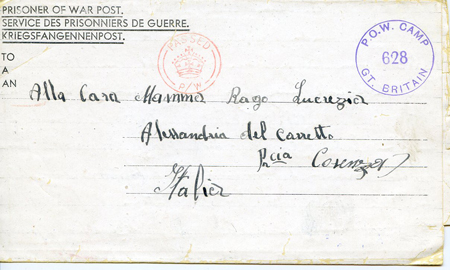 PRISONER OF WAR POST.
SERVICE DES PRISONNIERS DE GUERRE.
KRIEGSFANGENNENPOST.
PASSED
P/W
P.O.W. CAMP
628
GT. BRITAIN
TO
A
AN
Alla Cara Mamma Rago Lucrezia
Alessandria del Carretto
Pcia Cosenza)
Italia